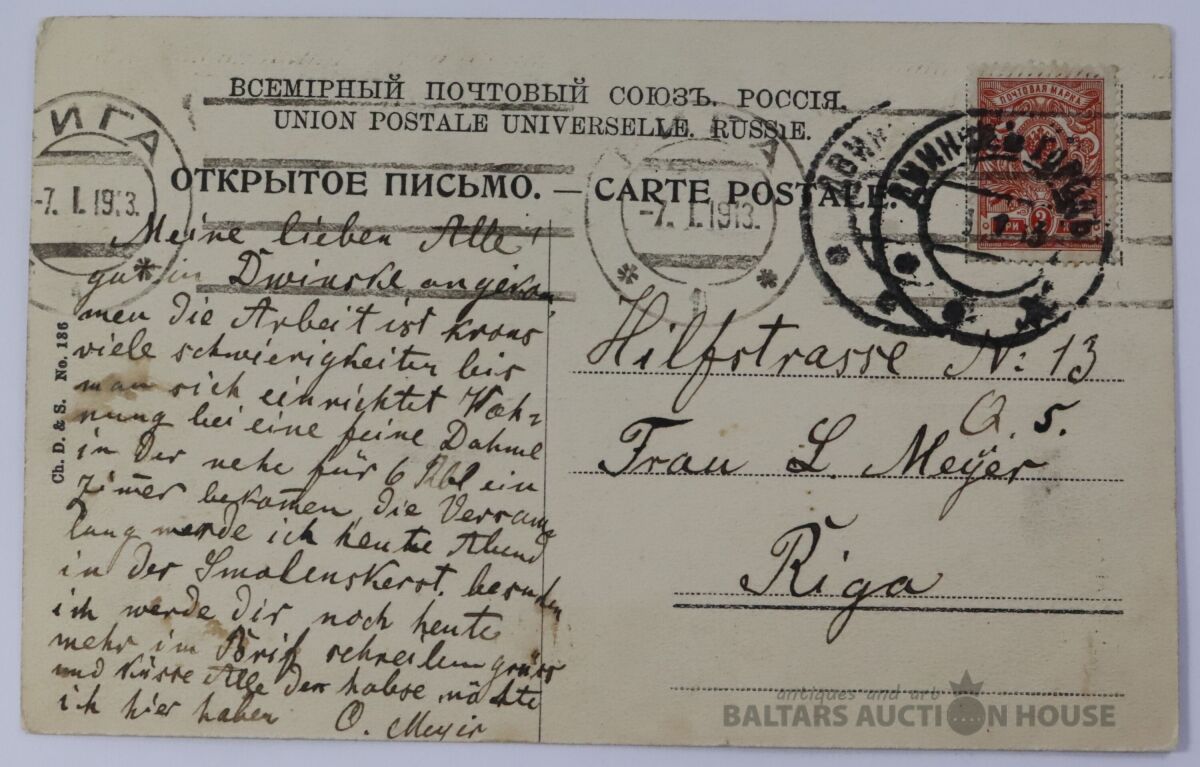 ВСЕМІРНЫЙ ПОЧТОВЫЙ СОЮЗЪ. РОССІЯ.
UNION POSTALE UNIVERSELLE. RUSSIE.
ОТКРЫТОЕ ПИСЬМО. — CARTE POSTALE.
РИГА
-7. 1. 1913.
-7. 1. 1913.
ПОЧТОВАЯ МАРКА
ДВИНСКЪ
Ch. D. & S. No. 136
Meine lieben Alle!
gut in Dwinske angekom
men die Arbeit ist
viele schwierigkeiten bis
man sich einrichtet Woh=
nung bei eine feine Dahme
in der nehe für 6 Rbl ein
Zimer bekomen, die Versam
lung werde ich heute Abend
in der Smolenskerst.
ich werde dir noch heute
mehr im Brif schreiben grüss
und küsse Alle
ich hier haben O. Meyer
Hilfstrasse N: 13
Q. 5.
Frau L. Meyer
Riga
antiques and art
BALTARS AUCTION HOUSE